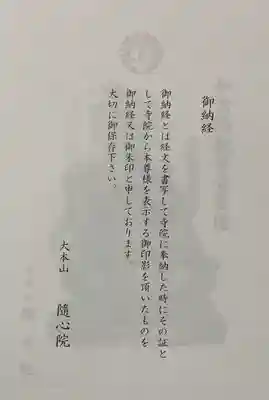 御納経
御納経とは経文を書写して寺院に奉納した時にその証と
して寺院から本尊様を表示する御印影を頂いたものを
御納経又は御朱印と申しております。
大切に御保存下さい。
大本山
隨心院